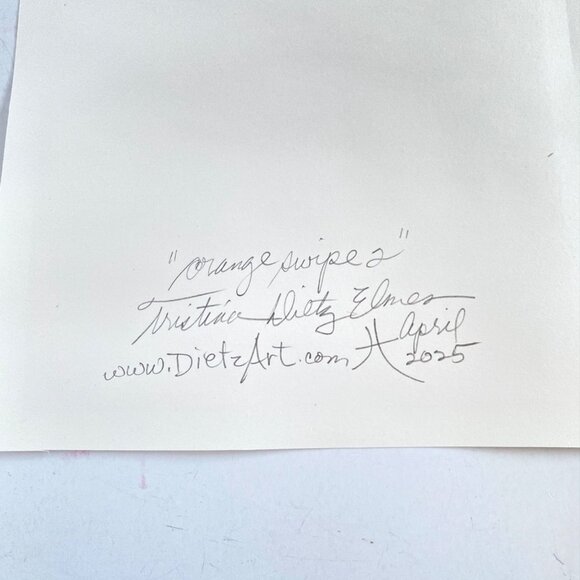 "orange swipe 2"
Tristina Dietz Elmes
www.DietzArt.com April
2025